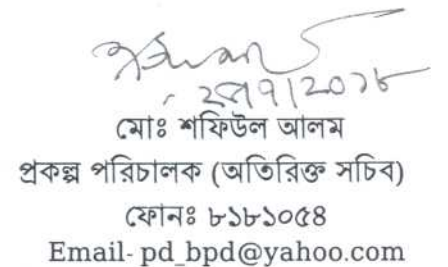 মোঃ শফিউল আলম
প্রকল্প পরিচালক (অতিরিক্ত সচিব)
ফোনঃ ৮১৮১০৫৪
Email- pd_bpd@yahoo.com